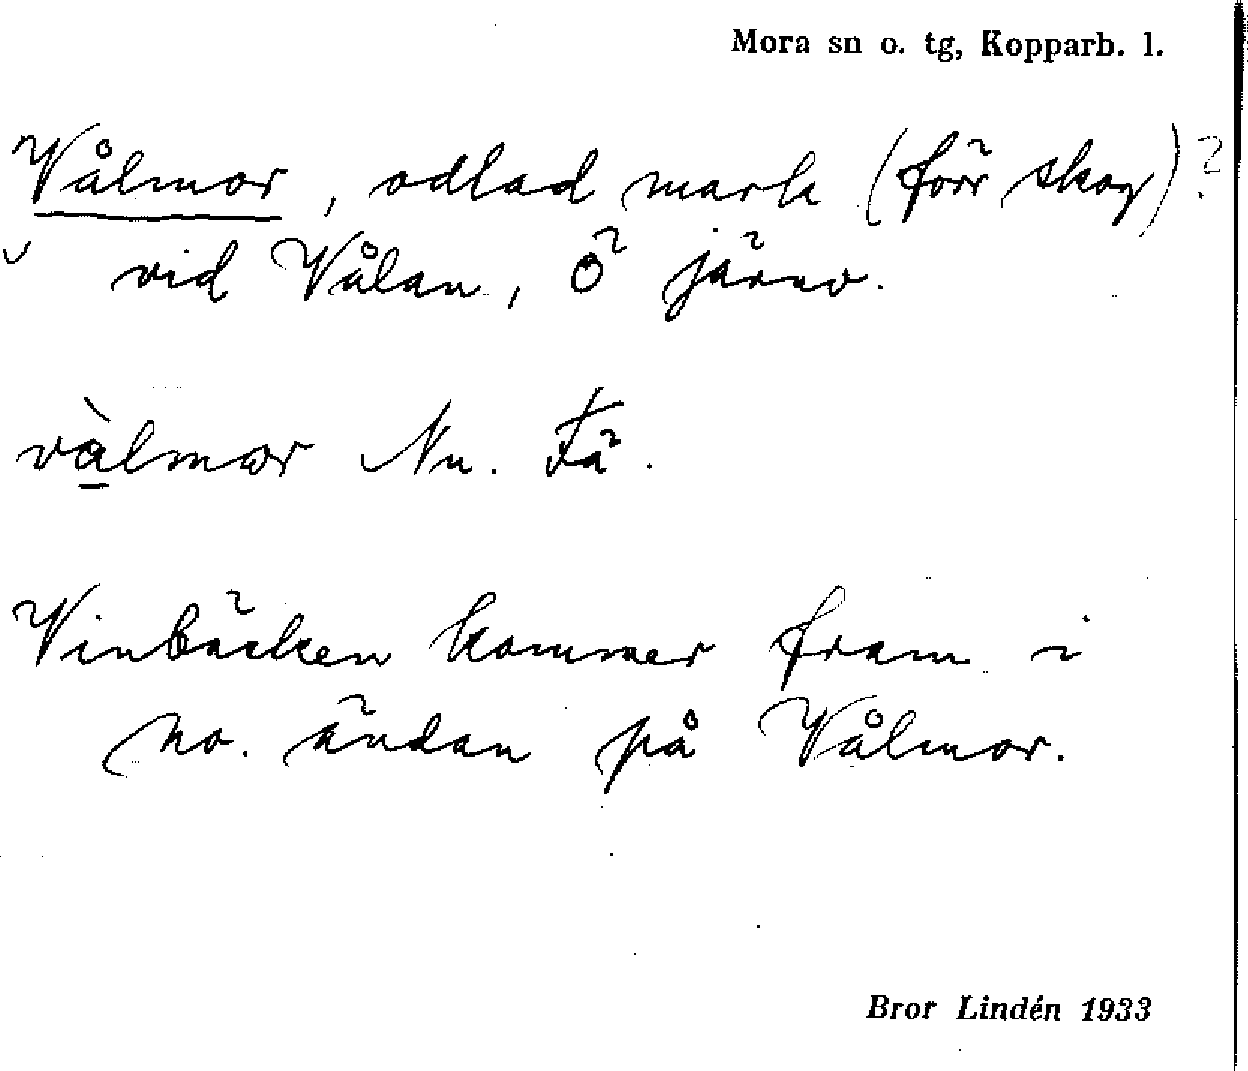 Mora sn o. tg, Kopparb. l.
Vålmor, odlad mark (förr skog)?
vid Vålan, Ö järnv.
vàlmor Nu. Få.
Vinbäcken kommer fram i
no. ändan på Vålmor.
Bror Lindén 1933